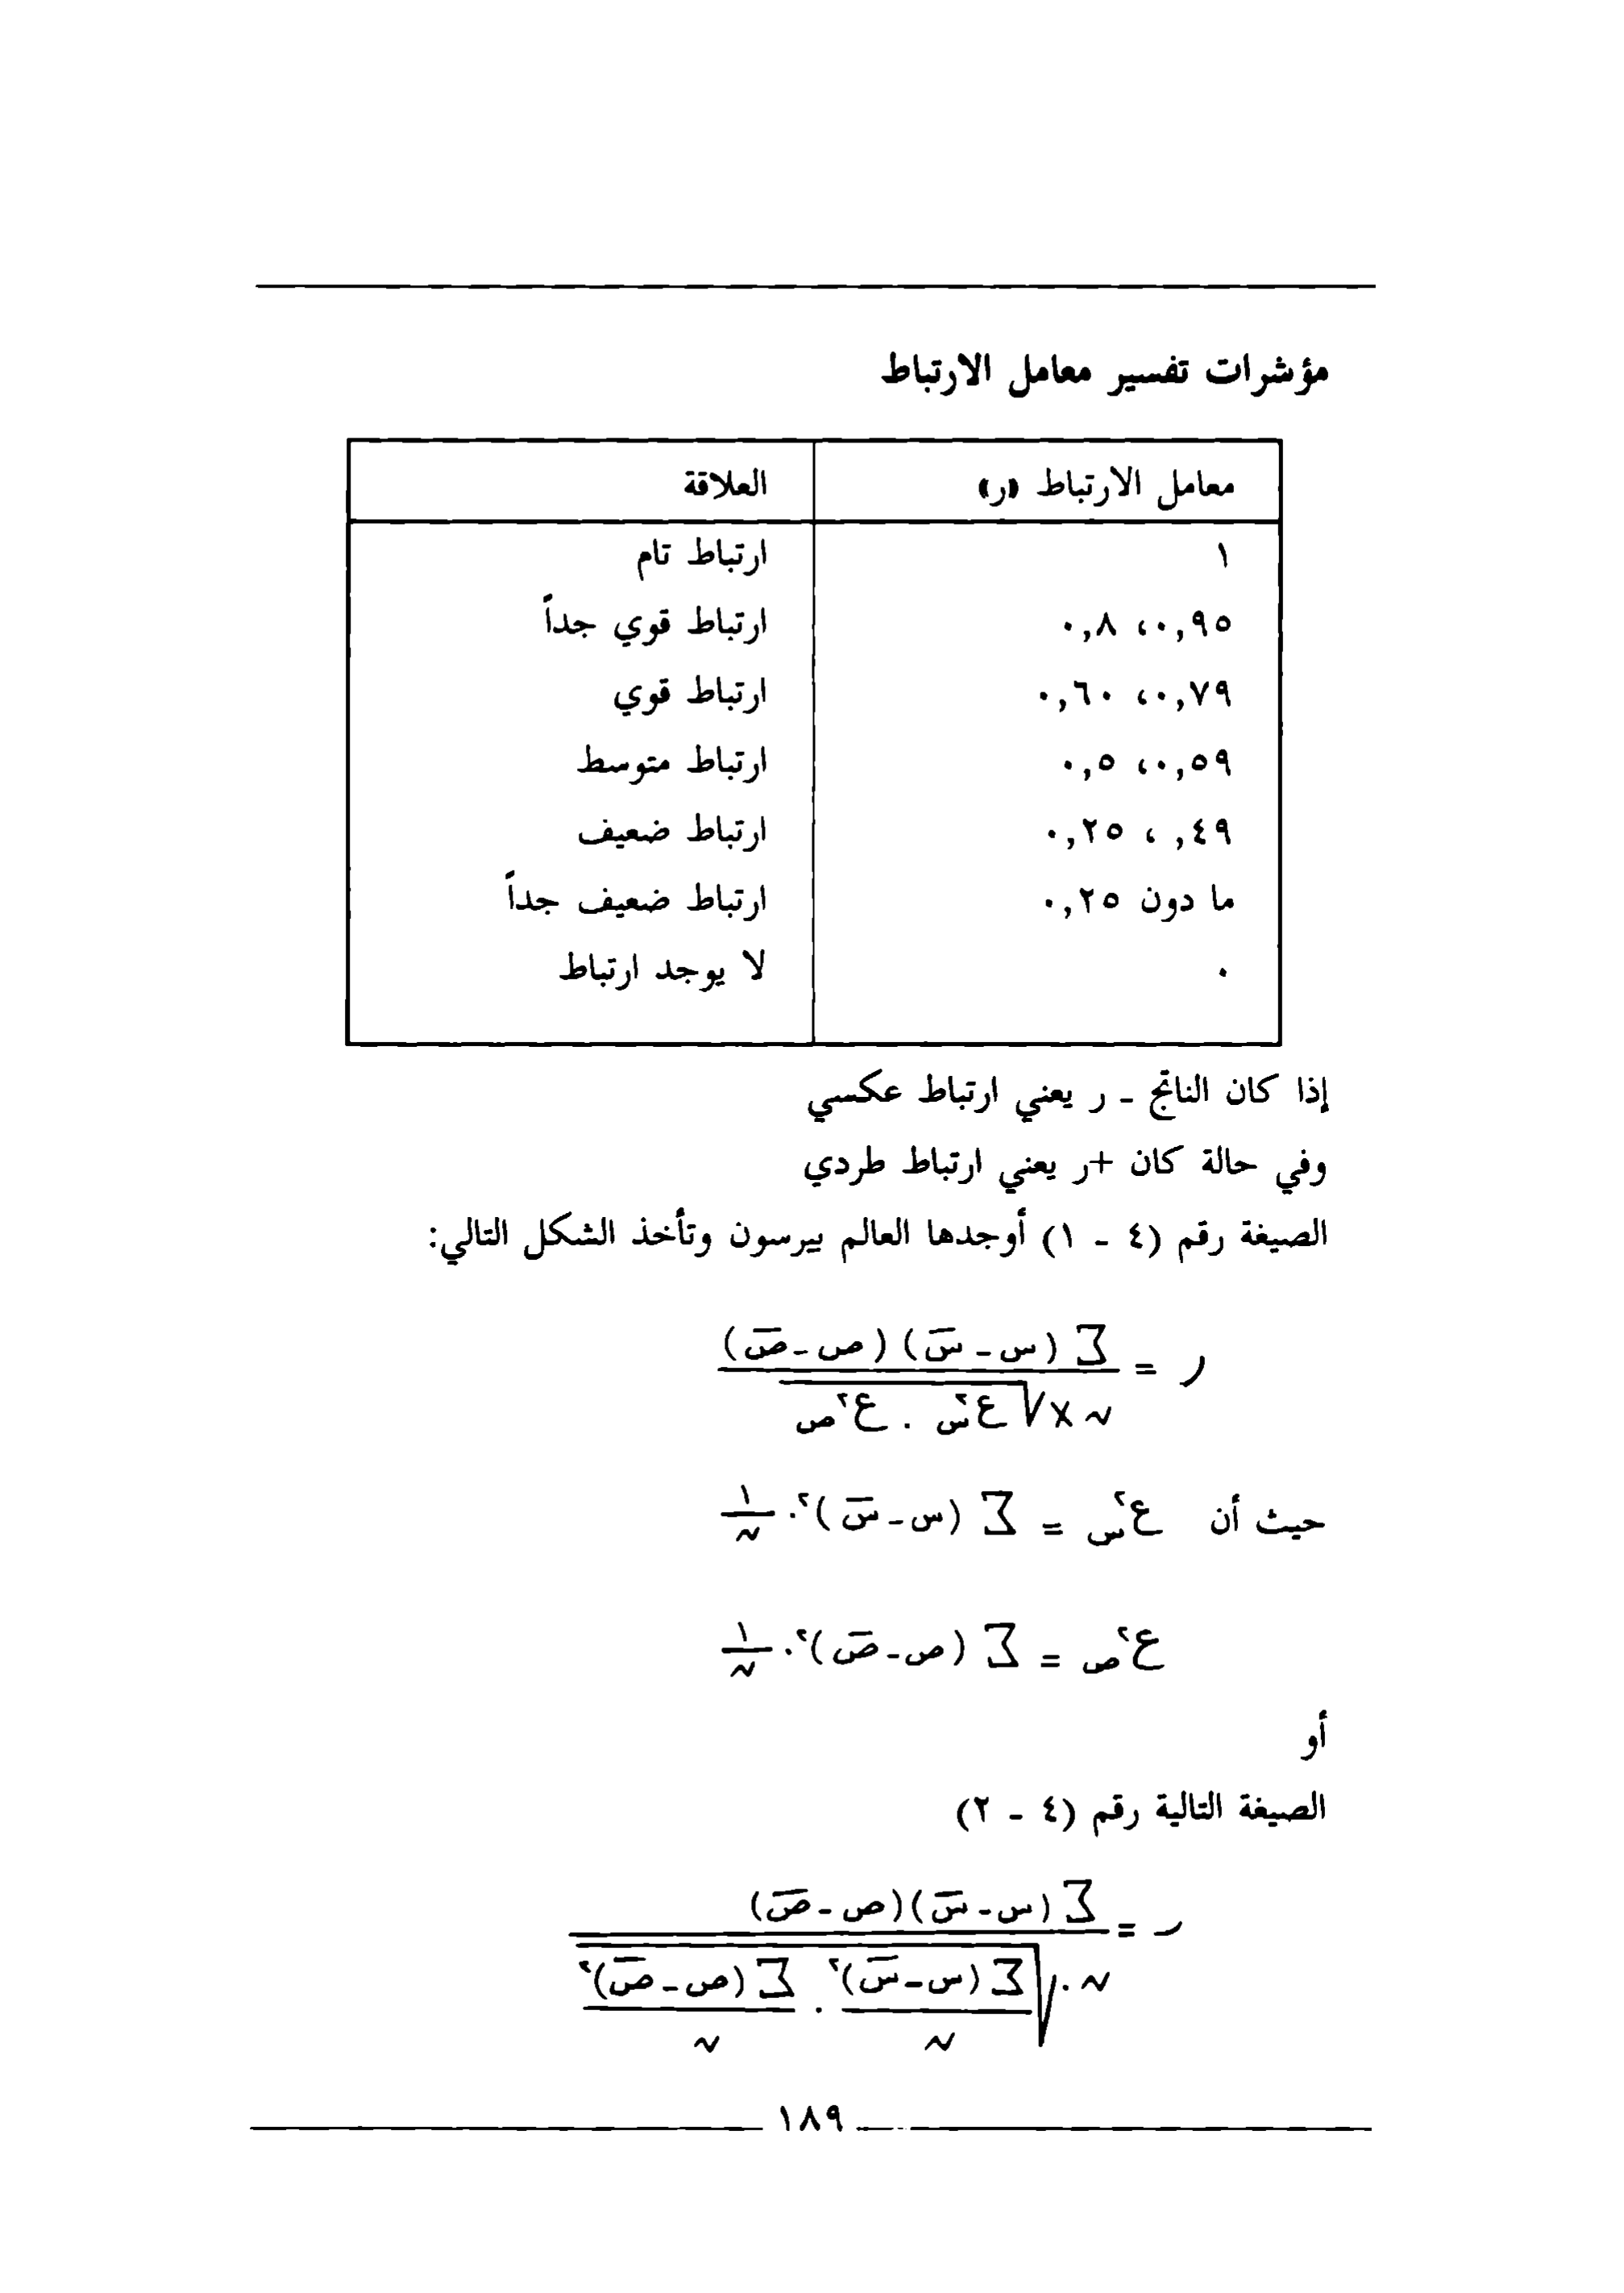 مؤشرات تفسير معامل الارتباط
معامل الارتباط «ر» العلاقة
١ ارتباط تام
٠,٩٥، ٠,٨ ارتباط قوي جداً
٠,٧٩، ٠,٦٠ ارتباط قوي
٠,٥٩، ٠,٥ ارتباط متوسط
,٤٩ ، ٠,٢٥ ارتباط ضعيف
ما دون ٠,٢٥ ارتباط ضعيف جداً
٠ لا يوجد ارتباط
إذا كان الناتج - ر يعني ارتباط عكسي
وفي حالة كان +ر يعني ارتباط طردي
الصيغة رقم (٤ - ١) أوجدها العالم بيرسون وتأخذ الشكل التالي:
ر = ∑ (س - س̅) (ص - ص̅)
ن × √ع²س . ع²ص
حيث أن ع²س = ∑ (س - س̅)² . ١/ن
ع²ص = ∑ (ص - ص̅)² . ١/ن
أو
الصيغة التالية رقم (٤ - ٢)
ر = ∑ (س - س̅)(ص - ص̅)
ن . √ ∑ (س - س̅)² . ∑ (ص - ص̅)²
ن ن
١٨٩